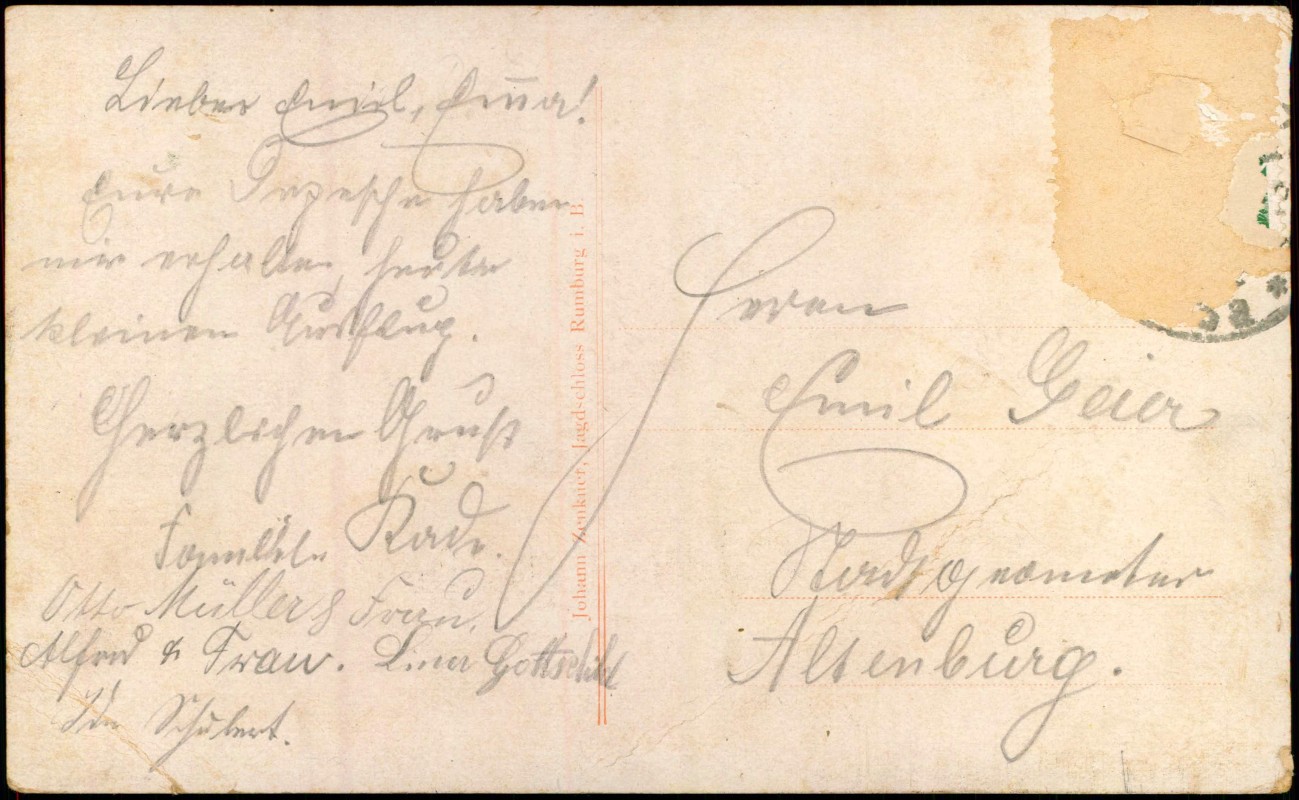 Lieber Emil, Em̅a!
Eure Depesche haben
wir erhalten, heute
kleinen Ausflug.
Herzlichen Gruß
Familie Kade.
Otto Müller & Frau.
Alfred & Frau. Lina Gottschald
Schubert.
Johann Zenkner, Jagd-schloss Rumburg i. B.
Herrn
Emil Geier
Stadtgeometer
Altenburg.